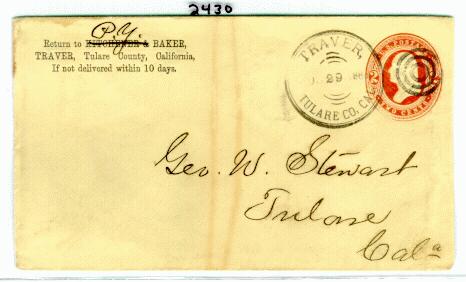 2430
P.Y.
Return to KITCHENER & BAKER,
TRAVER, Tulare County, California,
If not delivered within 10 days.
TRAVER,
29
TULARE CO. CAL.
U.S. POSTAGE
TWO CENTS
Geo. W. Stewart
Tulare
Cala